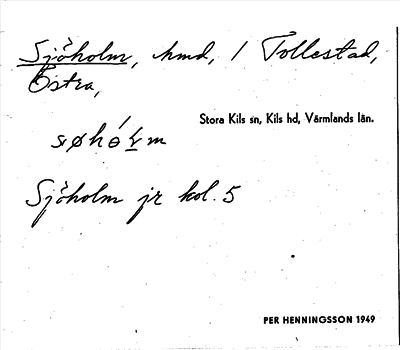 Sjöholm, hmd, 1 Tollestad,
Östra,
Stora Kils sn, Kils hd, Värmlands län.
Sjöholm jr kol. 5
PER HENNINGSSON 1949